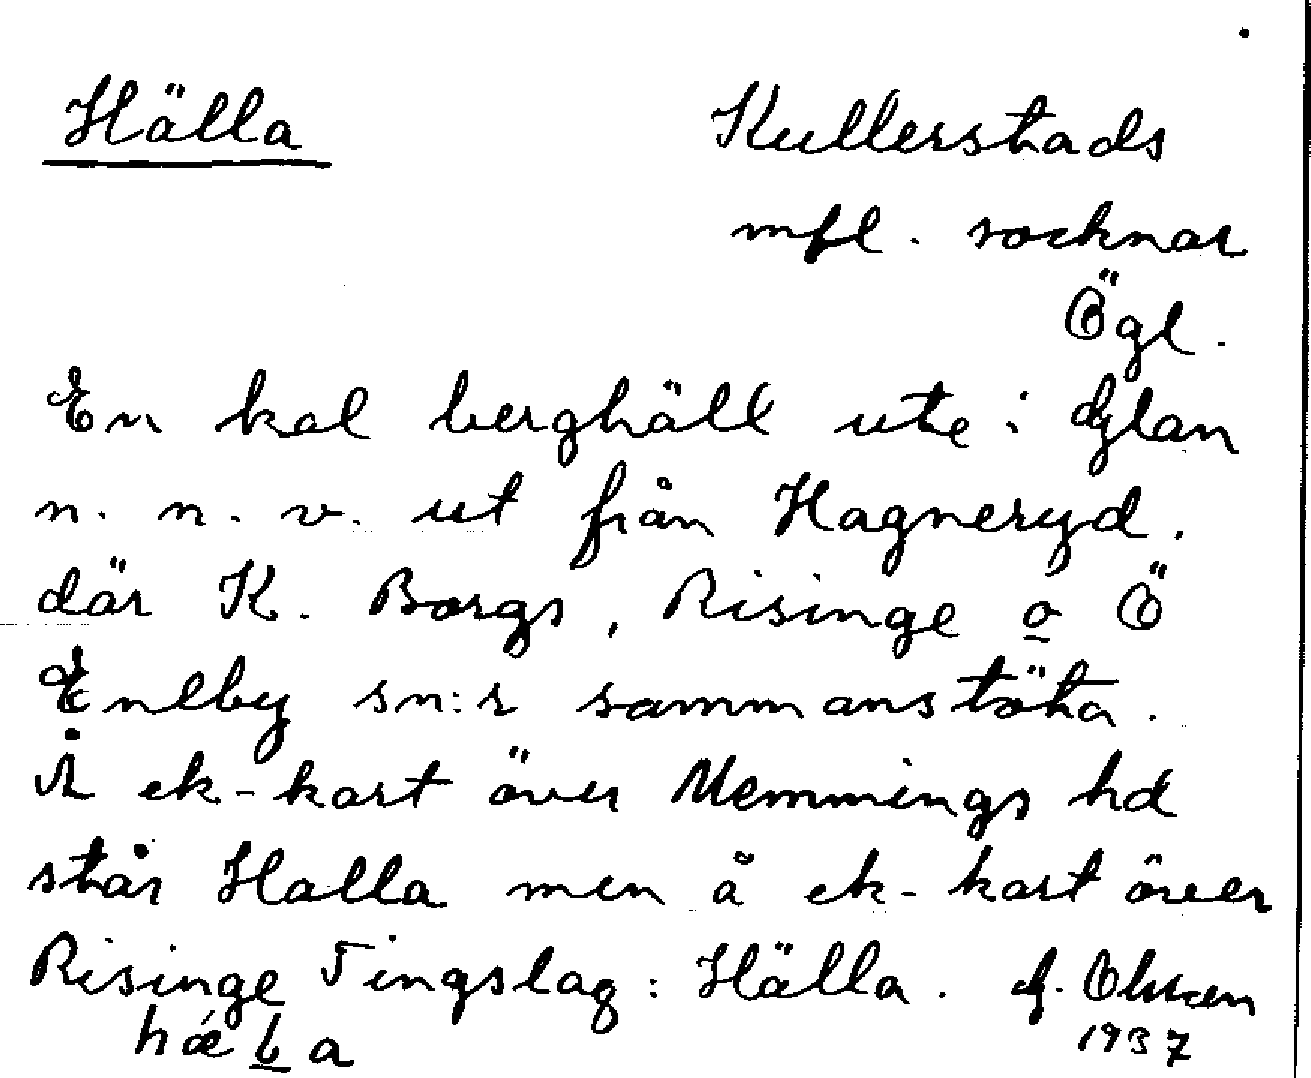 Hälla
Kullerstads
mfl. socknar
Ögl.
En kal berghäll ute i Glan
n. n. v. ut från Hagneryd.
där K. Borgs, Risinge o Ö
Eneby sn:r sammanstöta.
Å ek-kart över Memmings hd
står Halla men å ek-kart över
Risinge Tingslag: Hälla. J. Olsson
hǽla
1937